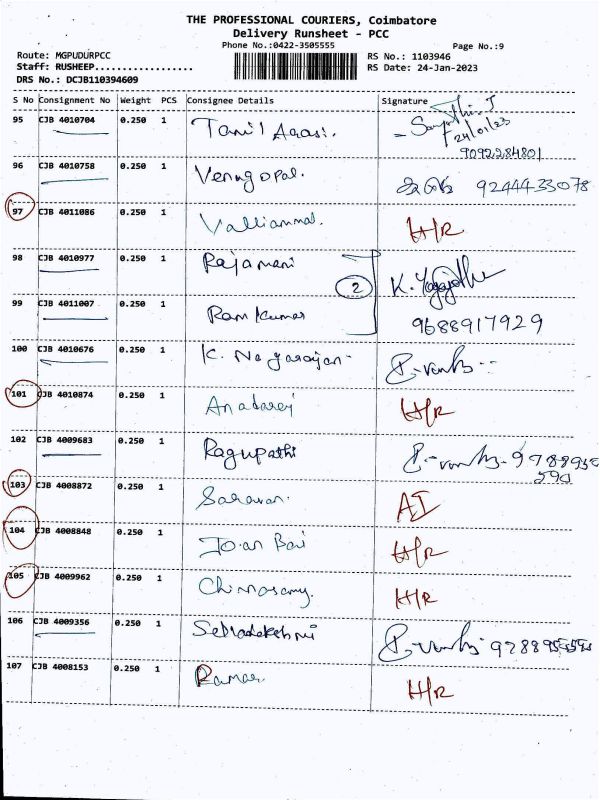 THE PROFESSIONAL COURIERS, Coimbatore
Delivery Runsheet - PCC
Phone No.:0422-3505555
Page No.:9
Route: MGPUDURPCC
RS No.: 1103946
Staff: RUSHEEP..................
RS Date: 24-Jan-2023
DRS No.: DCJB110394609
S No Consignment No Weight PCS Consignee Details Signature
95 CJB 4010704 0.250 1 Tamil Arasi.
24/01/23
9092284801
96 CJB 4010758 0.250 1 Venugopal. 9244433078
97 CJB 4011086 0.250 1 Valliammal. H/R
98 CJB 4010977 0.250 1 Rajamani
2 K.
99 CJB 4011007 0.250 1 Ramkumar 9688917929
100 CJB 4010676 0.250 1 K. Nagarajan
101 CJB 4010874 0.250 1 H/R
102 CJB 4009683 0.250 1 Ragupathi
103 CJB 4008872 0.250 1 Saravan. AI
104 CJB 4008848 0.250 1 H/R
105 CJB 4009962 0.250 1 Chinnasamy. H/R
106 CJB 4009356 0.250 1
107 CJB 4008153 0.250 1 Raman H/R